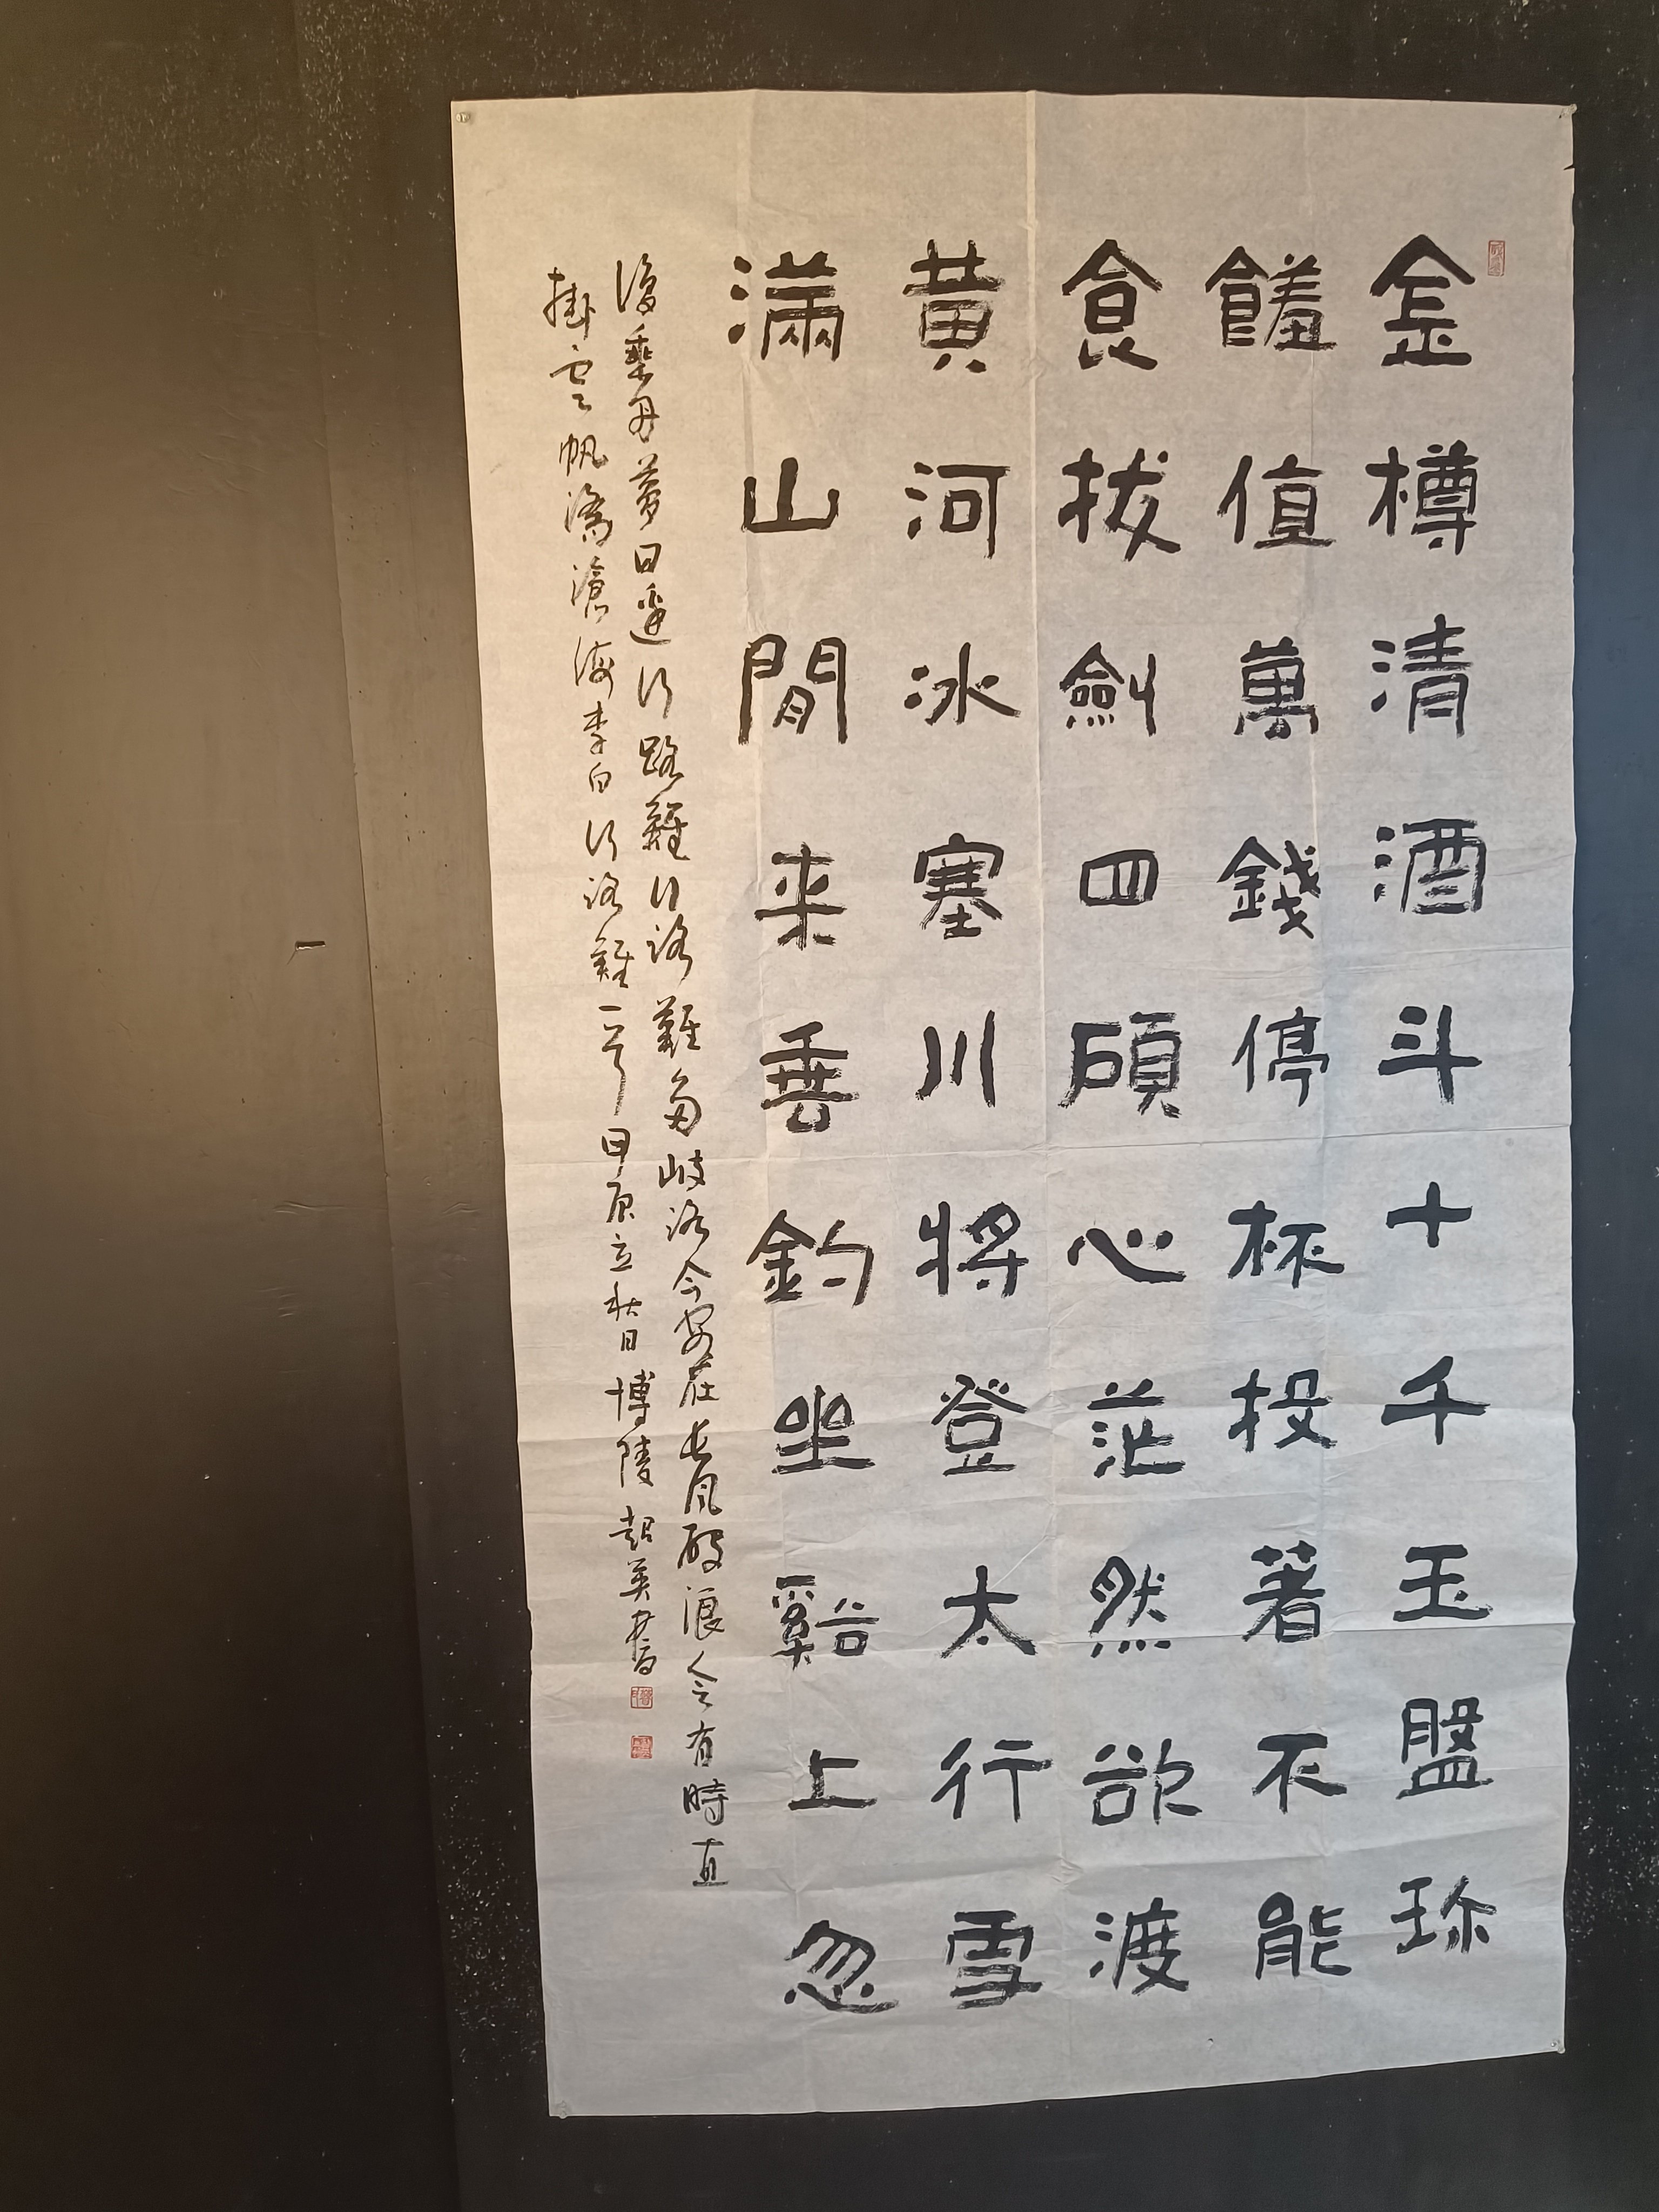 金樽清酒斗十千玉盤珎
饈值萬錢停杯投著不能
食拔劍四碩心茫然欲渡
黄河冰塞川將登太行雪
滿山閒来垂釣坐谿上忽
復乘舟夢日邊行路難行路難多岐路今安在長風破浪会有時直
掛雲帆濟滄海李白行路難一首甲辰立秋日博陵英書